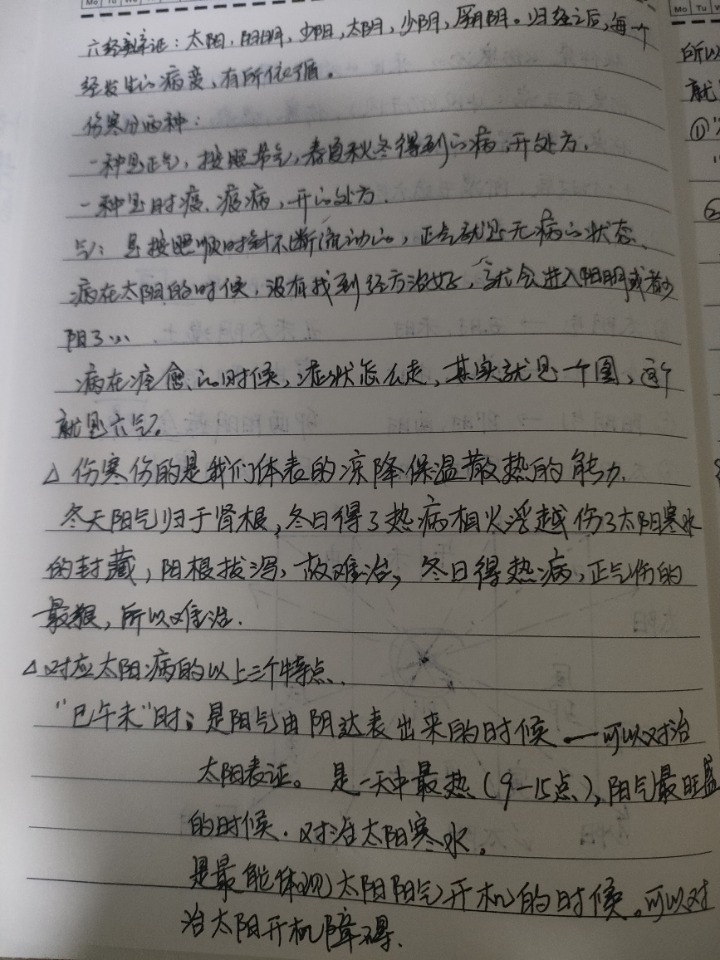 六经辨证：太阳，阳明，少阳，太阴，少阴，厥阴。归经之后，每一个
经发生的病变，有所依循。
伤寒分两种：
一种是正气，按照节气，春夏秋冬得到的病，开处方，
一种是时疫、瘟病，开的处方.
气：是按照顺时针不断流动的，正气就是无病的状态、
病在太阳的时候，没有找到经方治好，就会进入阳明或者少
阳了…
病在痊愈的时候，症状怎么走，其实就是一个圆，这个
就是六气。
△伤寒伤的是我们体表的凉降保温散热的能力.
冬天阳气归于肾根，冬日得了热病相火浮越伤了太阳寒水
的封藏，阳根拔泻，故难治，冬日得热病，正气伤的
最狠，所以难治.
△对应太阳病的以上三个特点.
"巳午未"时：是阳气由阴达表出来的时候—可以对治
太阳表证。是一天中最热（9-15点），阳气最旺盛
的时候．对治太阳寒水。
是最能体现太阳阳气开机的时候。可以对
治太阳开机障碍.
所以
就
①
②